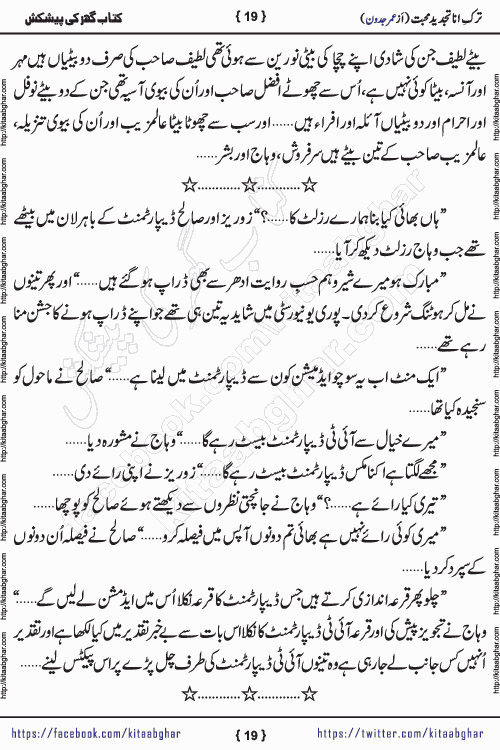 ترکِ انا تجدیدِ محبت (از عمر جدون) { 19 } کتاب گھر کی پیشکش
بیٹے لطیف جن کی شادی اپنے چچا کی بیٹی نورین سے ہوئی تھی لطیف صاحب کی صرف دو بیٹیاں ہیں مہر
اور آنسہ، بیٹا کوئی نہیں ہے، اُس سے چھوٹے افضل صاحب اور اُن کی بیوی آسیہ تھی جن کے دو بیٹے نوفل
اور احرام اور دو بیٹیاں آئلہ اور افراء ہیں...... اور سب سے چھوٹا بیٹا عالمزیب اور اُن کی بیوی تنزیلہ،
عالمزیب صاحب کے تین بیٹے ہیں سرفروش، وہاج اور بشر......
☆............☆............☆
”ہاں بھائی کیا بنا ہمارے رزلٹ کا......؟“ زوریز اور صالح ڈیپارٹمنٹ کے باہر لان میں بیٹھے
تھے جب وہاج رزلٹ دیکھ کر آیا......
”مبارک ہو میرے شیرو ہم حسبِ روایت ادھر سے بھی ڈراپ ہو گئے ہیں......“ اور پھر تینوں
نے مل کر ہوٹنگ شروع کر دی۔ پوری یونیورسٹی میں شاید یہ تین ہی تھے جو اپنے ڈراپ ہونے کا جشن منا
رہے تھے......
”ایک منٹ اب یہ سوچو ایڈمیشن کون سے ڈیپارٹمنٹ میں لینا ہے......“ صالح نے ماحول کو
سنجیدہ کیا تھا......
”میرے خیال سے آئی ٹی ڈیپارٹمنٹ بیسٹ رہے گا......“ وہاج نے مشورہ دیا......
”مجھے لگتا ہے اکنامکس ڈیپارٹمنٹ بیسٹ رہے گا......“ زوریز نے اپنی رائے دی......
”تیری کیا رائے ہے......؟“ وہاج نے جانچتی نظروں سے دیکھتے ہوئے صالح کو پوچھا......
”میری کوئی رائے نہیں ہے بھائی تم دونوں آپس میں فیصلہ کرو......“ صالح نے فیصلہ اُن دونوں
کے سپرد کر دیا......
”چلو پھر قرعہ اندازی کرتے ہیں جس ڈیپارٹمنٹ کا قرعہ نکلا اُس میں ایڈمشن لے لیں گے......“
وہاج نے تجویز پیش کی اور قرعہ آئی ٹی ڈیپارٹمنٹ کا نکلا اس بات سے بے خبر تقدیر میں کیا لکھا ہے اور تقدیر
اُنہیں کس جانب لے جا رہی ہے وہ تینوں آئی ٹی ڈیپارٹمنٹ کی طرف چل پڑے پراس پیکٹس لینے......
☆............☆............☆
https://facebook.com/kitaabghar { 19 } https://twitter.com/kitaabghar
http://kitaabghar.com
kitaabghar.com